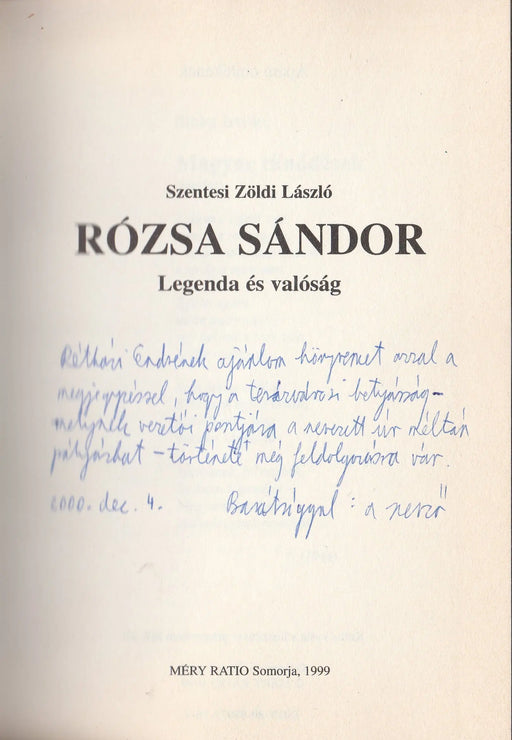 Szentesi Zöldi László
RÓZSA SÁNDOR
Legenda és valóság
Réthári Endrének ajánlom könyvemet azzal a
megjegyzéssel, hogy a terézvárosi betyárság-
melynek vezetői posztjára a nevezett úr méltán
pályázhat - története még feldolgozásra vár.
2000. dec. 4. Barátsággal: a szerző
MÉRY RATIO Somorja, 1999